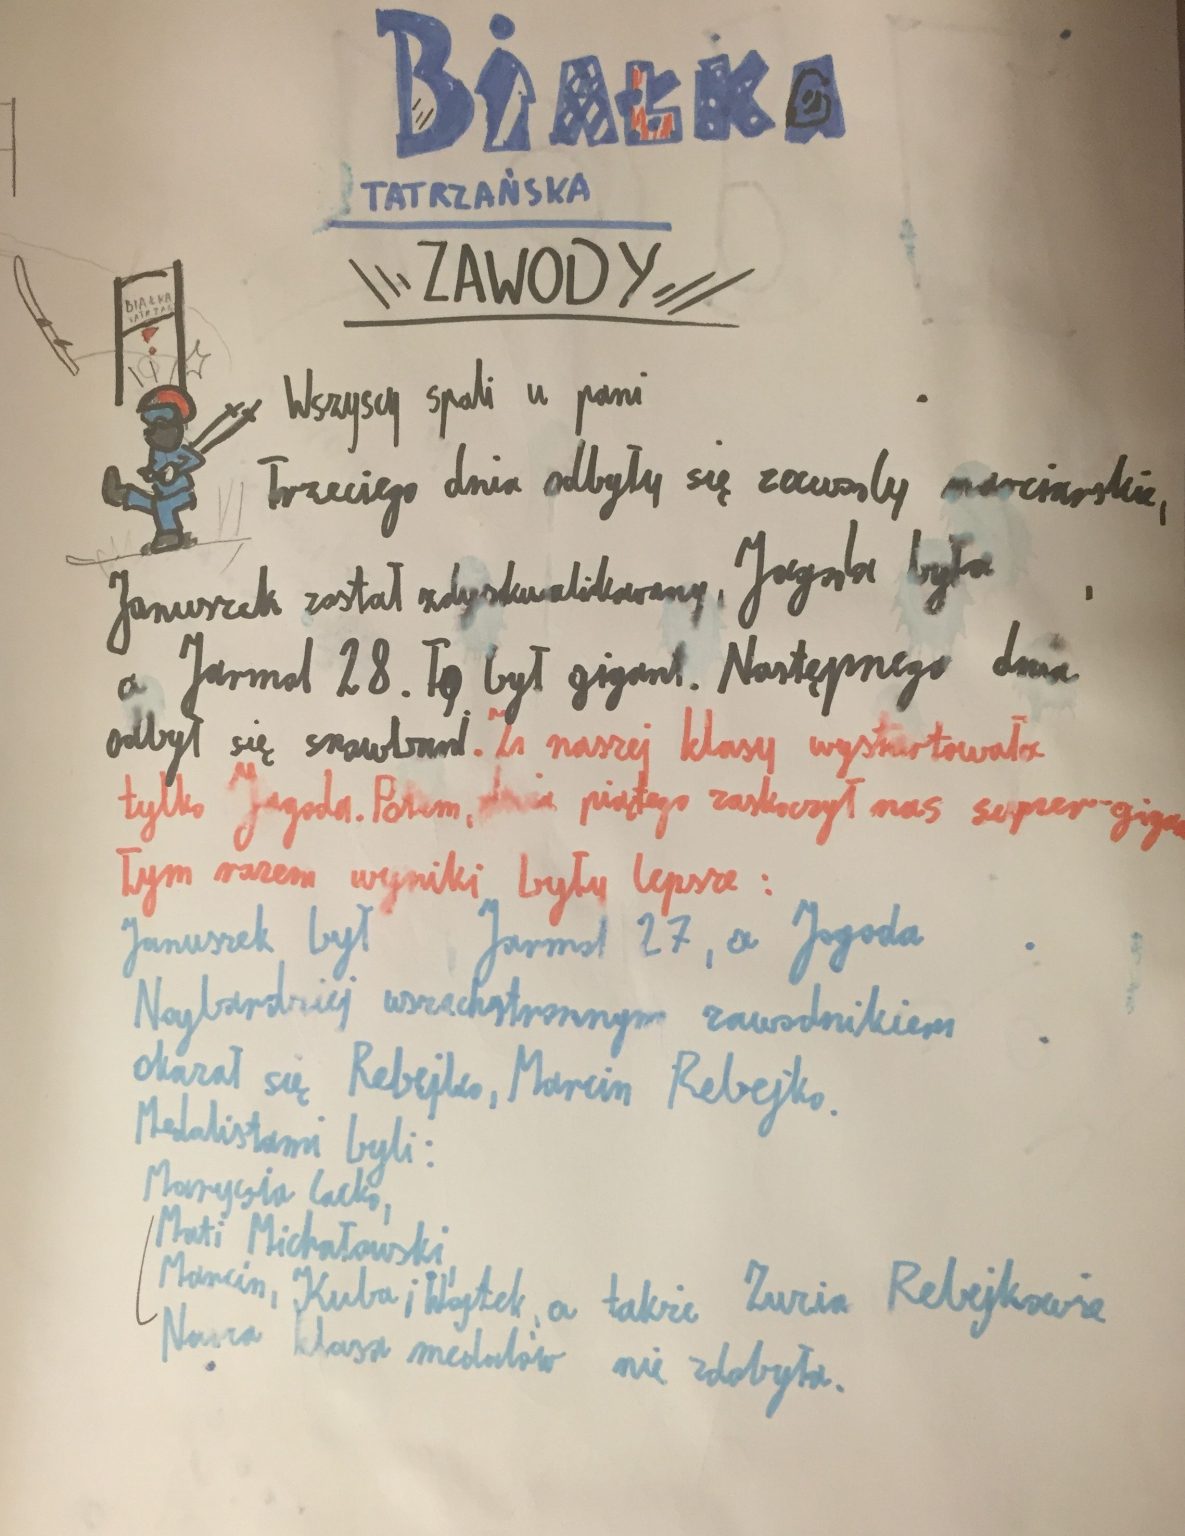 BIAŁKA
TATRZAŃSKA
ZAWODY
BIAŁKA
Wszyscy spali u pani .
Trzeciego dnia odbyły się zawody narciarskie,
Januszek został zdyskwalikowany, Jagoda była ,
a Jarmol 28. To był gigant. Następnego dnia
odbył się snowbord. Z naszej klasy wystartowała
tylko Jagoda. Potem, dnia piątego zaskoczył nas super-gigan
Tym razem wyniki były lepsze :
Januszek był Jarmol 27, a Jagoda .
Najbardziej wszechstronnym zawodnikiem .
okazał się Rebejko, Marcin Rebejko.
Medalistami byli:
Marysia Lacko,
Mati Michałowski,
Marcin, Kuba i Wojtek, a także Zuzia Rebejkowie
Nasza klasa medalów nie zdobyła.